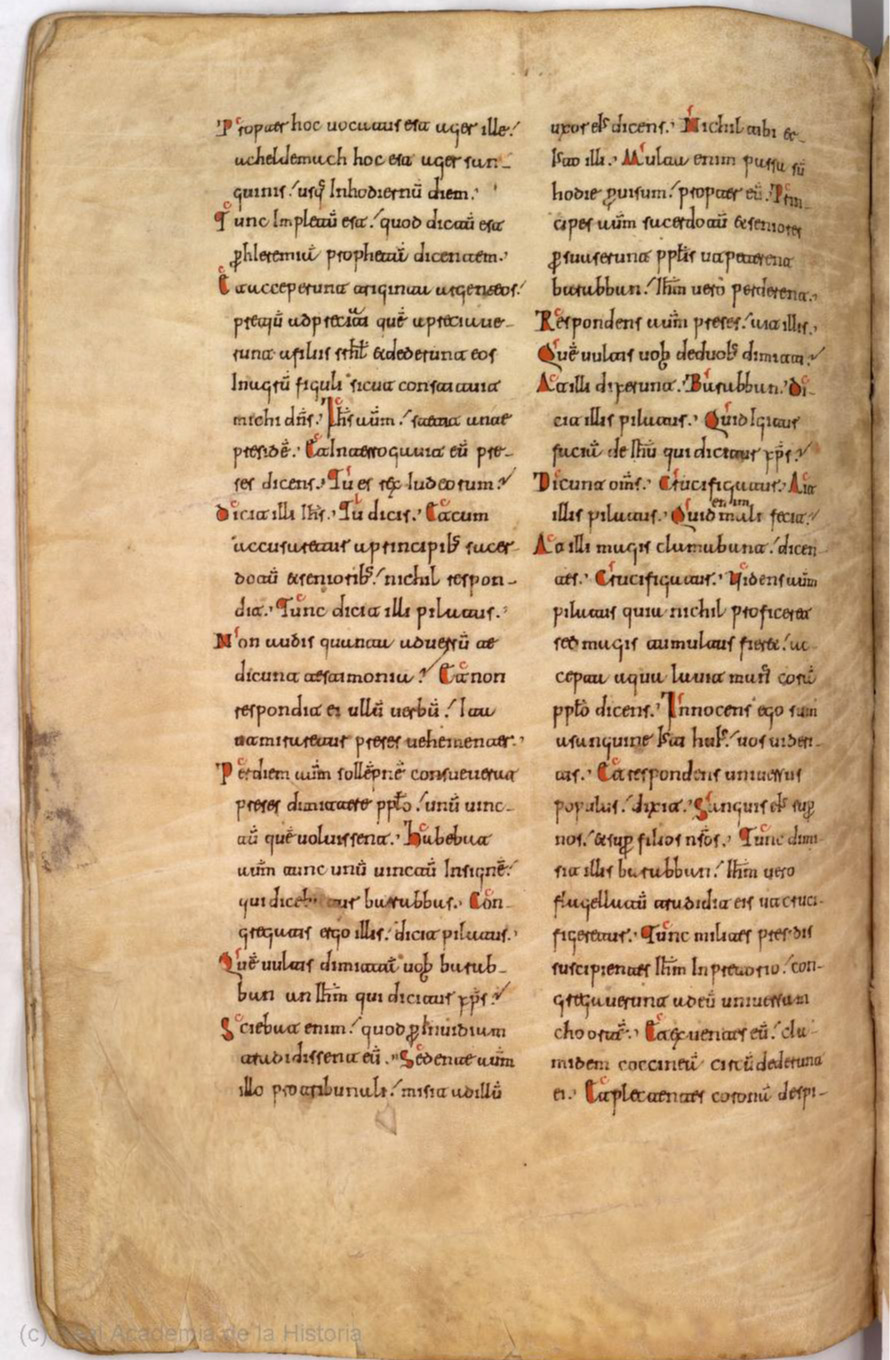 Propter hoc uocatus est ager ille
acheldemach hoc est ager san-
guinis usq; Inhodiernū diem.
Tunc Impletū est quod dictū est
p̱hIeremiā prophetā dicentem.
Et acceperunt triginta argenteos
pretiū adpretiati quē apretiaue-
runt afiliis isrhl̄ et dederunt eos
Inagrū figuli sicut constituit
michi dn̄s. Ih̄s aūm stetit ante
presidē. Et Interrogauit eū pre-
ses dicens. Tu es rex Iudeorum?
Dicit illi Ih̄s. Tu dicis. Et cum
accusaretur a principib; sacer-
dotū et seniorib; nichil respon-
dit. Tunc dicit illi pilatus.
Non audis quanta aduersū te
dicunt testimonia? Et non
respondit ei ullū uerbū Ita
ut miraretur preses uehementer.
Per diem aūm sollēpnē consueuerat
preses dimittere pplō unū uinc-
tū quē uoluissent. Habebat
aūm tunc unū uinctū Insignē
qui dicebatur barabbas. Con-
gregatis ergo illis dicit pilatus.
Quē uultis dimittā uob barab-
ban an Ih̄m qui dicitur xp̄s?
Sciebat enim quod p̱ Inuidiam
tradidissent eū. Sedente aūm
illo pro tribunali misit ad illū
uxor ei; dicens. Nichil tibi et
Isto illi. Multa enim passa sū
hodie p̱ uisum propter eū. Prin-
cipes aūm sacerdotū et seniores
p̱suaserunt pplis ut peterent
barabban Ih̄m uero perderent.
Respondens aūm preses ait illis.
Quē uultis uob de duob; dimitti?
At illi dixerunt. Barabban. Di-
cit illis pilatus. Quid Igitur
faciā de Ih̄u qui dicitur xp̄s?
Dicunt om̄s. Crucifigatur. Ait
illis pilatus. Quid enim mali fecit?
At illi magis clamabant dicen-
tes. Crucifigatur. Videns aūm
pilatus quia nichil proficeret
sed magis tumultus fieret ac-
cepta aqua lauit man; corā
pplo dicens. Innocens ego sum
asanguine Isti hui; uos uider-
itis. Et respondens uniuersus
populus dixit. Sanguis ei; sup̱
nos et sup̱ filios nr̄os. Tunc dimi-
sit illis barabban Ih̄m uero
flagellatū tradidit eis ut cruci-
figeretur. Tunc milites presidis
suscipientes Ih̄m In pretorio con-
gregauerunt ad eū uniuersam
chortē. Et exuentes eū cla-
midem coccineā circū dederunt
ei. Et plectentes coronā despi-
(c) Real Academia de la Historia